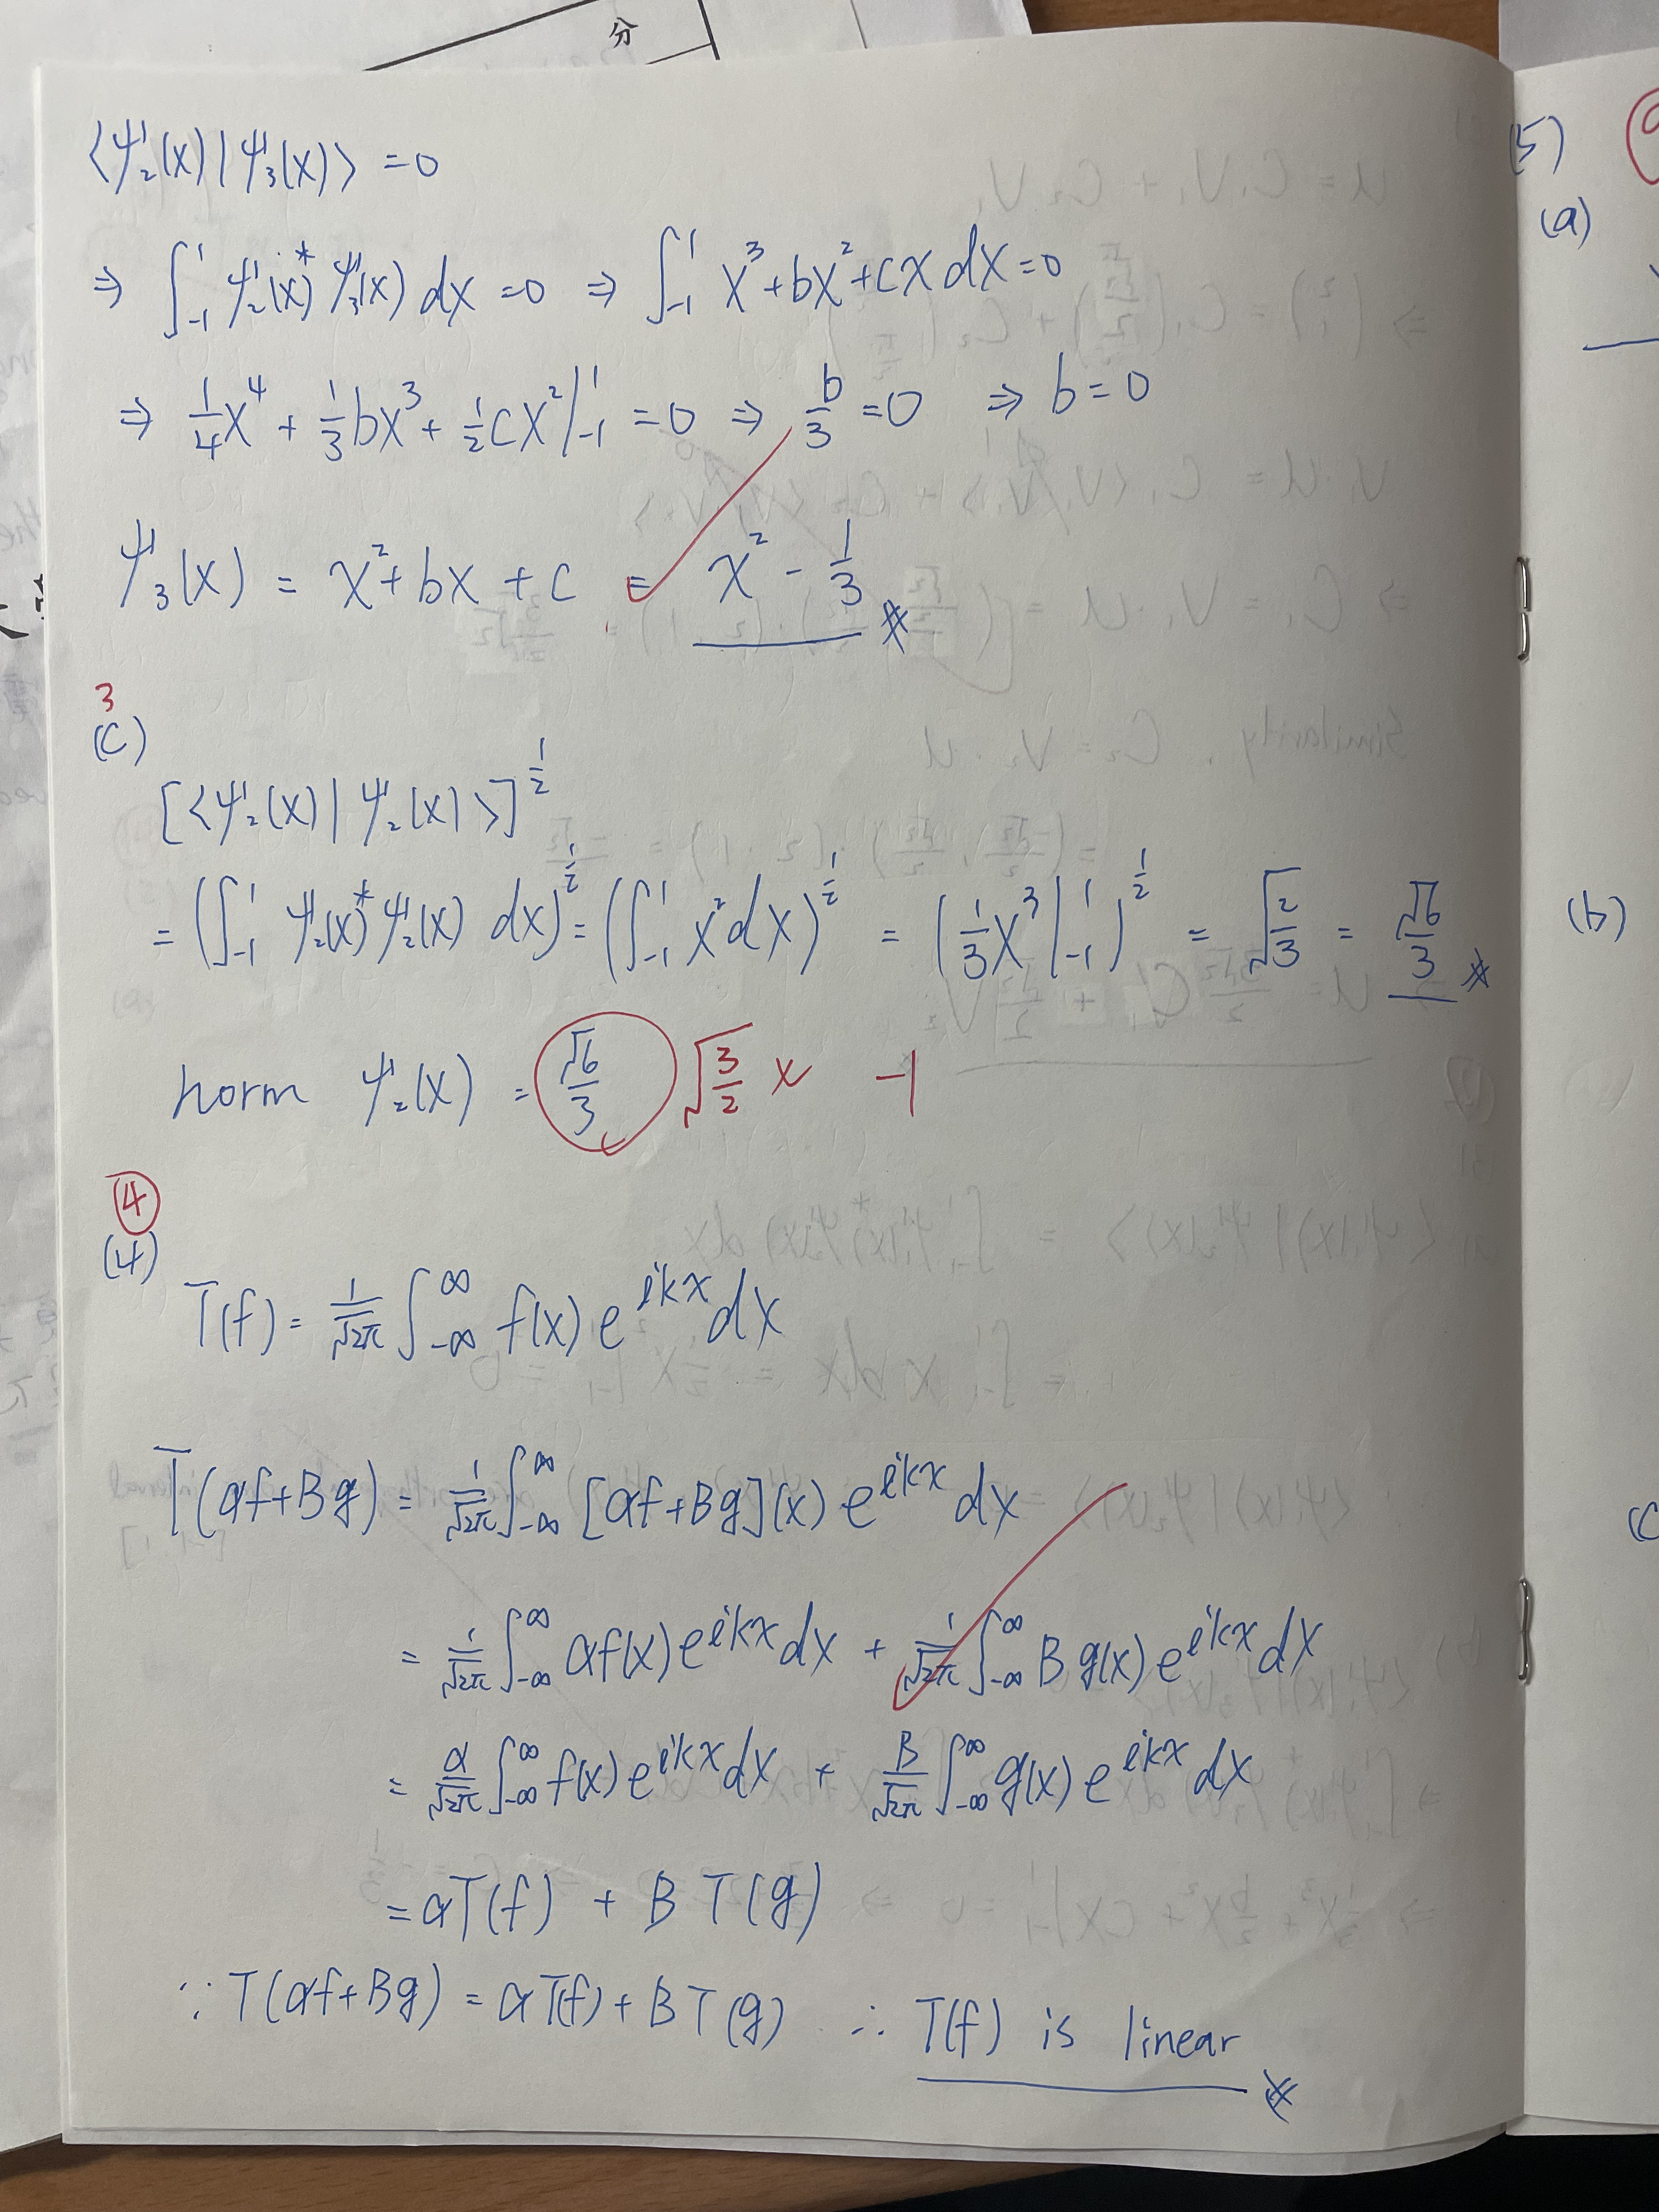 分
⟨ψ₂(x)|ψ₃(x)⟩ = 0
⇒ ∫₋₁¹ ψ₂(x)* ψ₃(x) dx = 0 ⇒ ∫₋₁¹ x³+bx²+cx dx = 0
⇒ 1/4 x⁴ + 1/3 bx³ + 1/2 cx² |₋₁¹ = 0 ⇒ b/3 = 0 ⇒ b = 0
ψ₃(x) = x²+bx+c = x² - 1/3
3
(c)
[⟨ψ₂(x)|ψ₂(x)⟩]^(1/2)
= (∫₋₁¹ ψ₂(x)* ψ₂(x) dx)^(1/2) = (∫₋₁¹ x² dx)^(1/2) = (1/3 x³ |₋₁¹)^(1/2) = √(2/3) = √6/3
norm ψ₂(x) = √6/3 √(3/2) x -1
4
(4)
T(f) = 1/√2π ∫₋∞^∞ f(x) e^(ikx) dx
T(αf+Bg) = 1/√2π ∫₋∞^∞ [αf+Bg](x) e^(ikx) dx
= 1/√2π ∫₋∞^∞ αf(x) e^(ikx) dx + 1/√2π ∫₋∞^∞ B g(x) e^(ikx) dx
= α/√2π ∫₋∞^∞ f(x) e^(ikx) dx + B/√2π ∫₋∞^∞ g(x) e^(ikx) dx
= αT(f) + B T(g)
∵ T(αf+Bg) = αT(f) + B T(g) ∴ T(f) is linear
(5)
(a)
(b)
(c